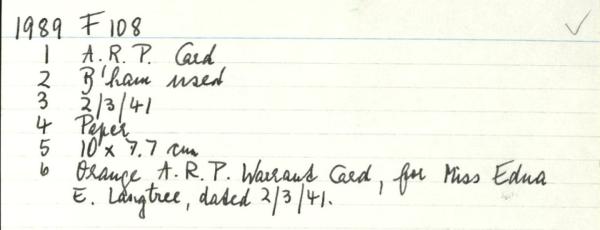 1989 F 108
1 A.R.P. Card
2 B'ham used
3 2/3/41
4 Paper
5 10 x 7.7 cm
6 Orange A.R.P. Warrant Card, for Miss Edna
E. Langtree, dated 2/3/41.